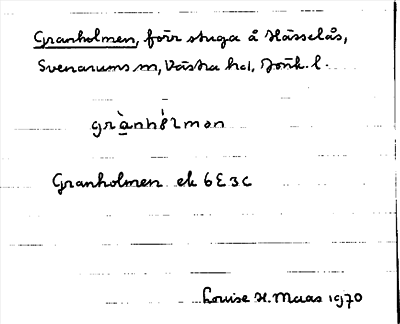 Granholmen, förr stuga å Hässelås,
Svenarums sn, Västra hd, Jönk. l.
grànhólmən
Granholmen ek 6E3c
Louise H. Maas 1970